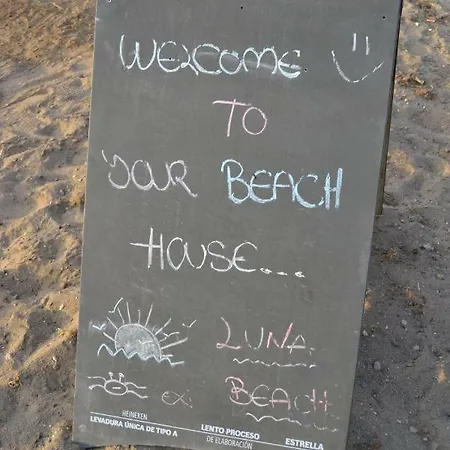 WELCOME
TO
YOUR BEACH
HOUSE...
LUNA
ex BEACH
HEINEKEN
LEVADURA ÚNICA DE TIPO A
LENTO PROCESO
DE ELABORACIÓN
ESTRELLA